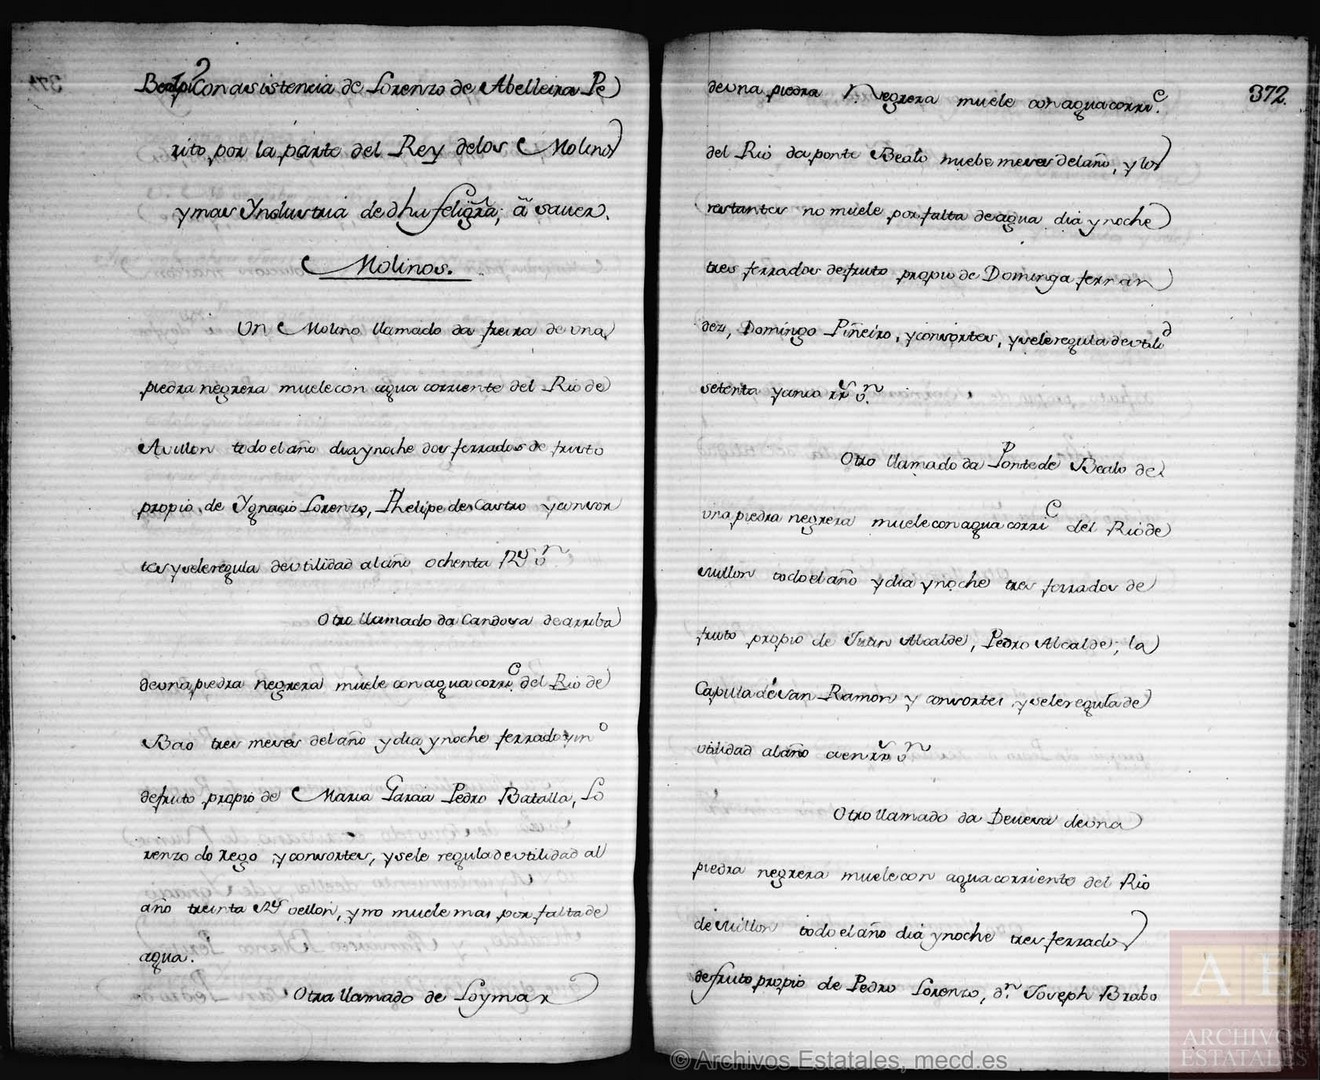 Con asistencia de Lorenzo de Abelleira Pe
rito por la parte del Rey delos Molinos
ymas Yndustria de dha feligra, â saver.
Molinos.
Un Molino llamado da freira de vna
piedra negrera muele con agua corriente del Rio de
Avillon todo el año dia y noche dos ferrados de fruto
propio de Ygnacio Lorenzo, Phelipe de Castro y consor
tes y sele regula de vtilidad al año ochenta rs von
Otro llamado da Candosa de arriba
de vna piedra negrera muele con agua corrie del Rio de
Bao tres meses del año y dia y noche ferrado y mo
de fruto propio de Maria Garcia Pedro Batalla, Lo
renzo do Rego y consortes, y sele regula de vtilidad al
año treinta rs vellon, y no muele mas por falta de
agua.
Otra llamado de Loymar
372.
de vna piedra negrera muele con agua corrie.
del Rio da ponte Bealo nuebe meses del año, y los
restantes no muele por falta de agua dia y noche
tres ferrados de fruto propio de Dominga fernan
dez, Domingo Piñeiro, y consortes, y sele regula de vtilid
setenta y cinco rrs von
Otro llamado da Ponte de Bealo de
vna piedra negrera muele con agua corrie del Rio de
Avillon todo el año y dia y noche tres ferrados de
fruto propio de Juan Alcalde, Pedro Alcalde; la
Capilla de San Ramon y consortes y sele regula de
vtilidad al año cien rrs von
Otro llamado da Devesa de vna
piedra negrera muele con agua corriente del Rio
de Avillon todo el año dia y noche tres ferrados
de fruto propio de Pedro Lorenzo, dn Joseph Brabo
© Archivos Estatales, mecd.es
AE
ARCHIVOS
ESTATALES